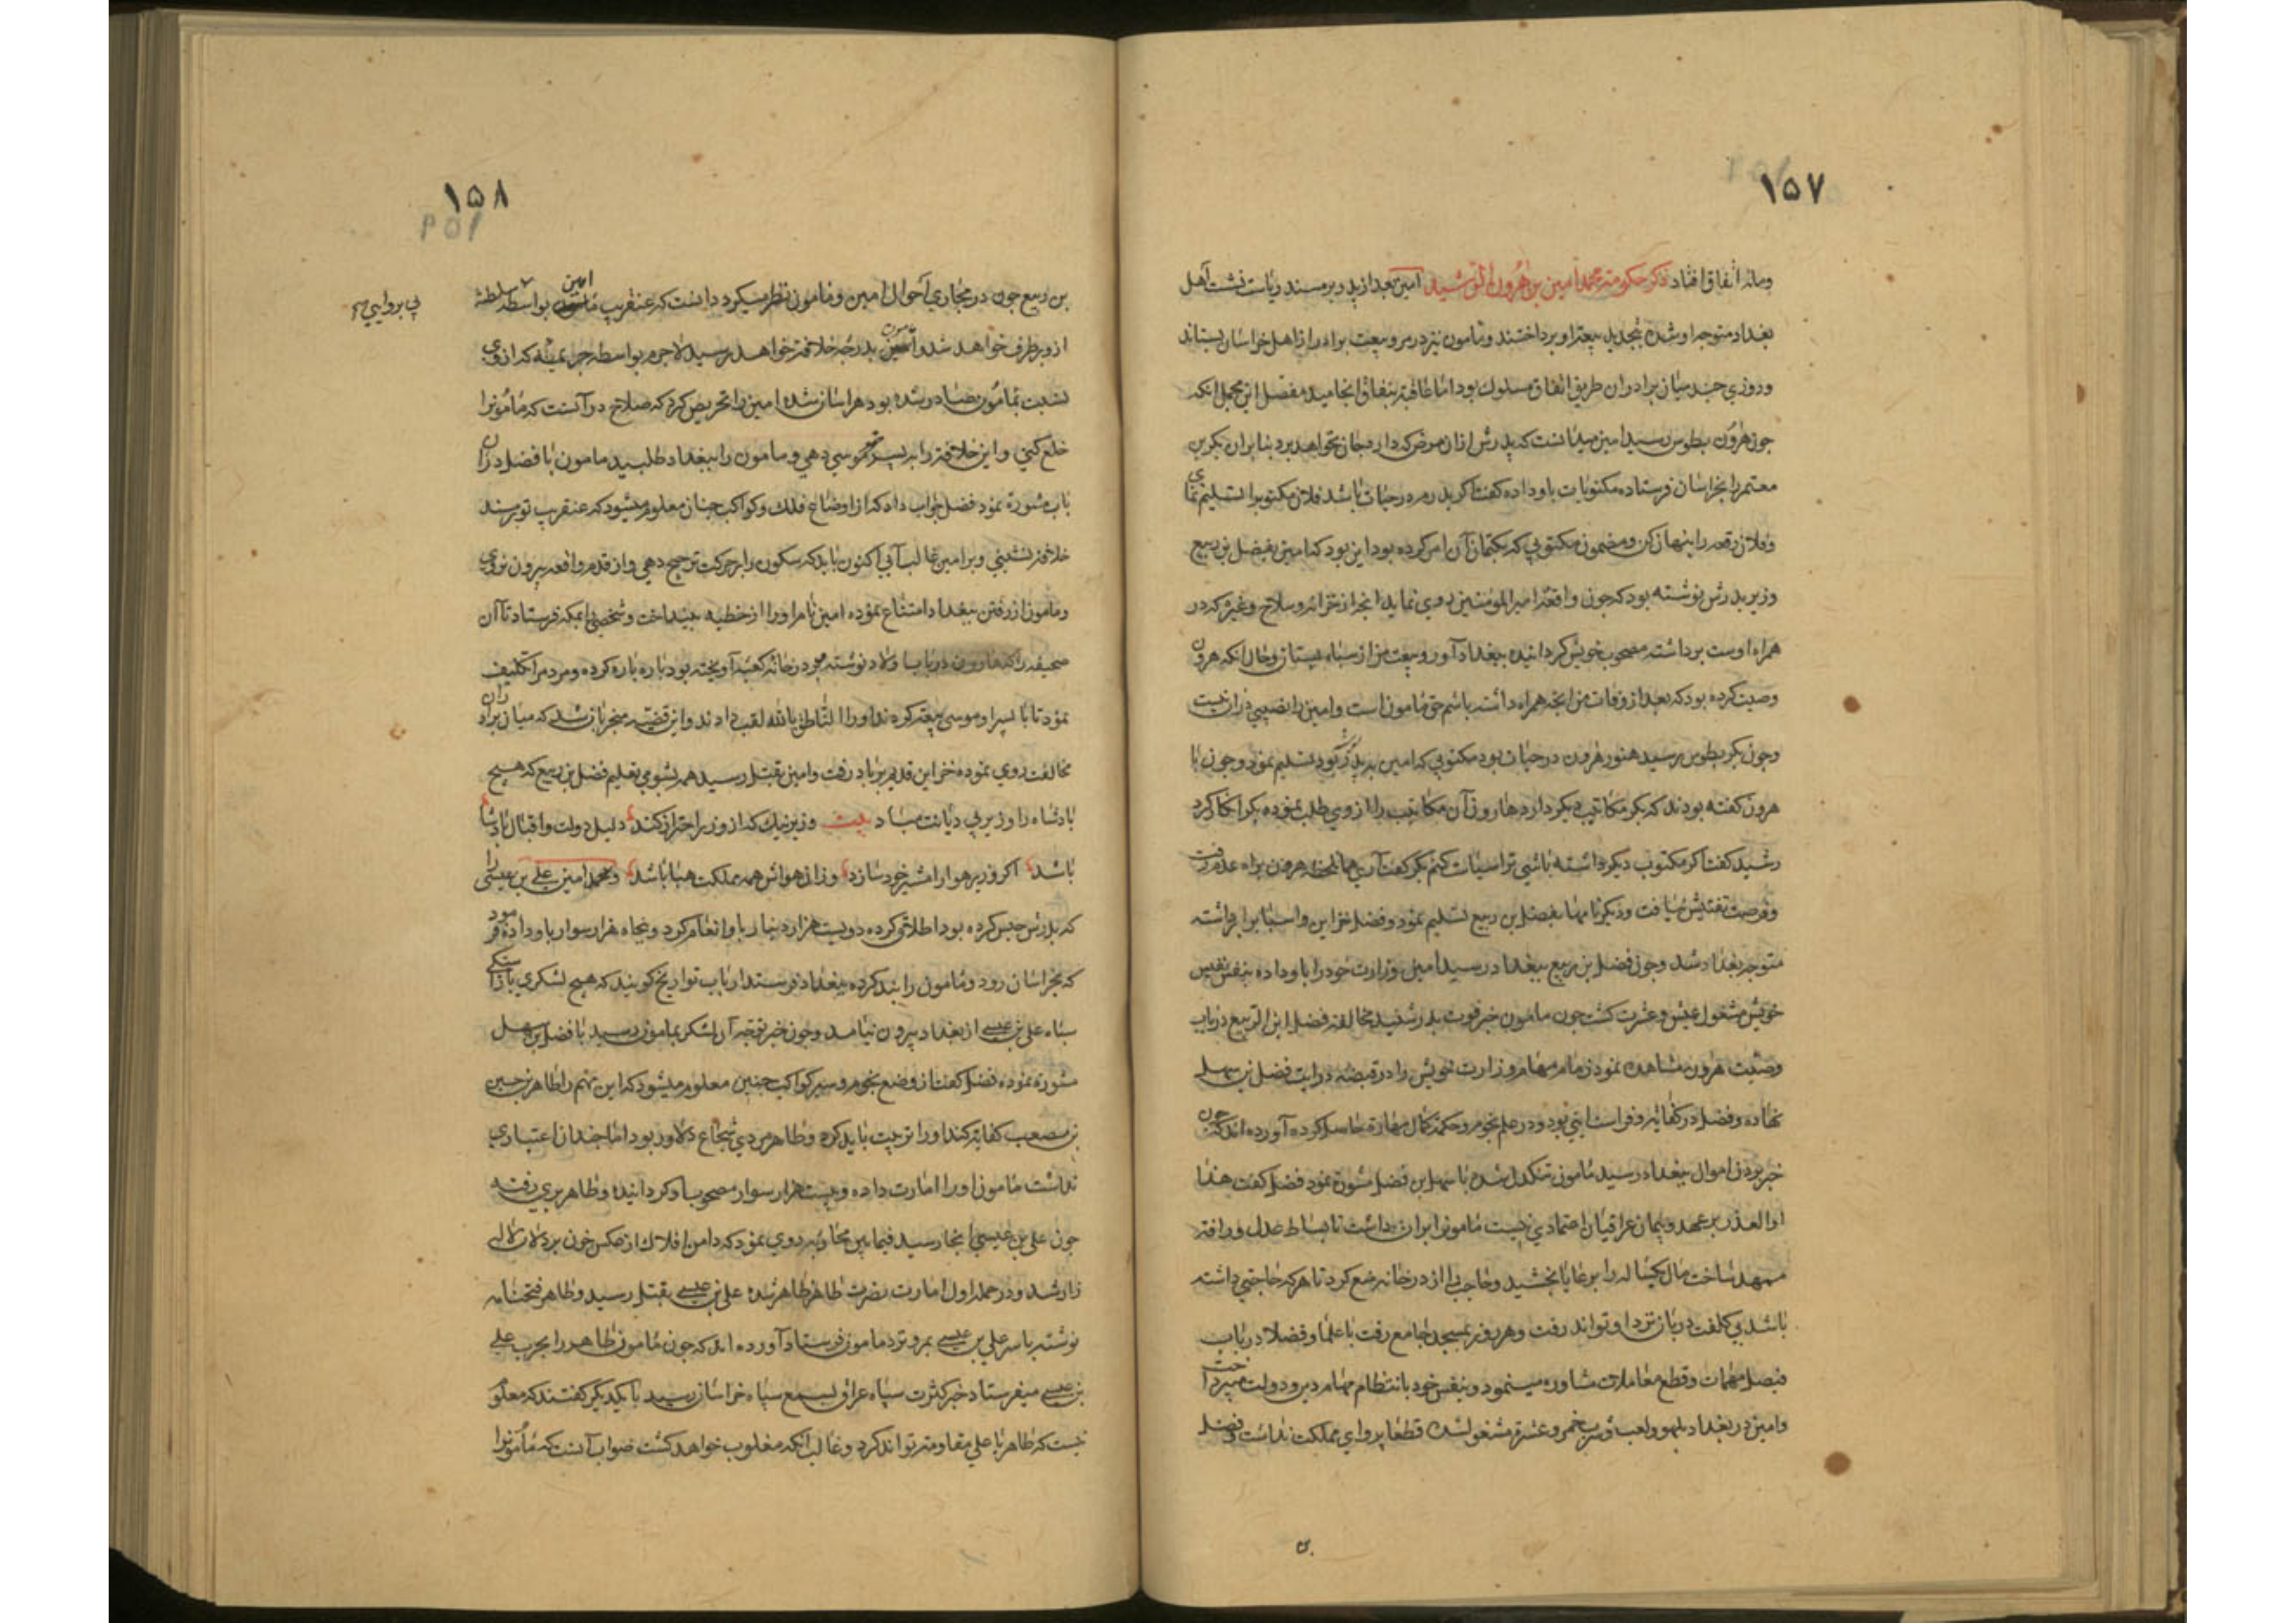 ۱۵۷
ومائه اتفاق افتاد ذکر حکومة محمد امین بن هرون الرشید امین بعد از پدر بر مسند ریاست نشت اهل
بغداد متوجه او شده بتجدید بیعة او پرداختند و مامون نیز در مرو بیعت برادر از اهل خراسان بستاند
وروزی چند میان برادران طریق اتفاق مسلوك بود اما عاقبة بنفاق انجامید مفصل این مجمل انکه
چون هرون بطوس رسید امین میدانست که پدرش ازان مرض که دارد جان نخواهد برد بنابران بکر بن
معتمر را بخراسان فرستاده مکتوبات باو داده کفت اکر پدرم در حیات باشد فلان مکتوبرا تسلیم نمای
وفلان رقعه را پنهان کن ومضمون مکتوبی که بکتمان آن امر کرده بود این بود که امین بفضل بن ربیع
وزیر پدرش نوشته بود که چون واقعهٔ امیر المومنین روی نماید انچه از خزانه وسلاح وغیره که در
همراه اوست برداشته مصحوب خویش کردانیده ببغداد آور وبیعت من از سپاه بستان وحال انکه هرون
وصیت کرده بود که بعد از وفات من انچه همراه داشته باشم حق مامون است وامین را نصیبی دران نیست
وچون بکر بطوس رسید هنوز هرون در حیات بود مکتوبی که امین به پدر کرده بود تسلیم نمود وچون با
هرون کفته بودند که بکر مکاتیب دیکر دارد هارون آن مکاتیب را از وی طلب نموده بکر انکار کرد
رشید کفت اکر مکتوب دیکر داشته باشی ترا سیاست کنم بکر کفت آری همان لحظه هرون براه عدم رفت
وفرصت تفتیش نیافت وبکر نامها بفضل بن ربیع تسلیم نمود وفضل خزاین واسبابرا برداشته
متوجه بغداد شد وچون فضل بن ربیع ببغداد رسید امین وزارت خود را باو داده بنفس نفیس
خویش مشغول عیش وعشرت کشت چون مامون خبر فوت پدر شنید مخالفة فضل ابن الربیع در باب
وصیت هرون مشاهده نمود زمام مهام وزارت خویش را در قبضه درایت فضل بن سهل
نهاده وفضل در کفایة وفراست ایتی بود ودر علم نجوم وحکمة کمال مهارة حاصل کرده آورده اند که چون
خبر بردن اموال ببغداد رسید مامون تنکدل شده با سهل ابن فضل مشورة نمود فضل کفت هذا
اول الغدر بر عهد وپیمان عراقیان اعتمادی نیست مامونرا بران داشت تا بساط عدل ورافة
ممهد ساخت مال یکساله را برعایا بخشید وحاجب را از در خانه منع کرد تا هر که حاجتی داشته
باشد بی کلفت دربان نزد او تواند رفت وهر روز بمسجد جامع رفت با علما وفضلا در باب
فیصل مهمات وقطع معاملات مشاوره مینمود وبنفس خود بانتظام مهام دین ودولت میپرداخت
وامین در بغداد بلهو ولعب وشرب خمر وعشرة مشغول شده قطعا پروای مملکت نداشت وفضل
۱۵۸
بن ربیع چون در مجاری احوال امین ومامون نظر میکرد دانست که عنقریب امین بواسطه سلطنة
بی پروایی
ازو بر طرف خواهد شد ومامون بدرجه خلافة خواهد رسید لاجرم بواسطه جرایمی که از وی
نسبت بمامون صادر شده بود هراسان شده امین را تحریض کرد که صلاح در آنست که مامونرا
خلع کنی واین خلافة را به پسر خود موسی دهی ومامون را ببغداد طلبید مامون با فضل دران
باب مشورة نمود فضل جواب داد که از اوضاع فلك وکواکب چنان معلوم میشود که عنقریب تو بر مسند
خلافة نشینی وبر امین غالب آیی اکنون باید که سکون را بر حرکت ترجیح دهی واز قدم واقعه بیرون نروی
ومامون از رفتن ببغداد امتناع نموده امین نام او را از خطبه بینداخت وشخصی بمکه فرستاد تا آن
صحیفه را که هارون در باب اولاد نوشته بود در خانه کعبه آویخته بود پاره پاره کرده ومردمرا تکلیف
نمود تا با پسر او موسی بیعة کردند واورا الناطق بالله لقب دادند واین قضیه منجر بان شد که میان برادران
مخالفت روی نموده خزاین قدیم بر باد رفت وامین بقتل رسید همه بشومی تعلیم فضل بن ربیع که هیچ
پادشاه را وزیر بی دیانت مباد بیت وزیر نیك که از وزر احتراز کند دلیل دولت واقبال پادشا
باشد اکر وزیر هوا را مشیر خود سازد وزان هواش همه مملکت هبا باشد ومحمد امین علی بن عیسی را
که پدرش حبس کرده بود اطلاق کرده دویست هزار دینار باو انعام کرد وپنجاه هزار سوار باو داده فرمود
که بخراسان رود ومامون را بند کرده ببغداد فرستد ارباب تواریخ کویند که هیچ لشکری باراستکی
سپاه علی بن عیسی از بغداد بیرون نیامد وچون خبر توجه آن لشکر بمامون رسید با فضل بن سهل
مشورة نموده فضل کفت از وضع نجوم وسیر کواکب چنین معلوم میشود که این مهم را طاهر بن حسین
بن مصعب کفایة کند او را تربیت باید کرد وطاهر مردی شجاع دلاور بود اما چندان اعتباری
نداشت مامون او را امارت داده وبیست هزار سوار مصحوب او کردانیده وطاهر بری رفته
چون علی بن عیسی انجا رسید فیمابین محاربه روی نمود که دامن افلاك از عکس خون پردلان لاله
زار شد ودر حمله اول امارت نصرت طاهر ظاهر شده علی بن عیسی بقتل رسید وطاهر فتحنامه
نوشته با سر علی بن عیسی بمرو نزد مامون فرستاد آورده اند که چون مامون طاهر را بحرب علی
بن عیسی میفرستاد خبر کثرت سپاه عراق بسمع سپاه خراسان رسید با یکدیکر کفتند که معلوم
نیست که طاهر با علی مقاومة تواند کرد وغالب آنکه مغلوب خواهد کشت صواب آنست که مامونرا